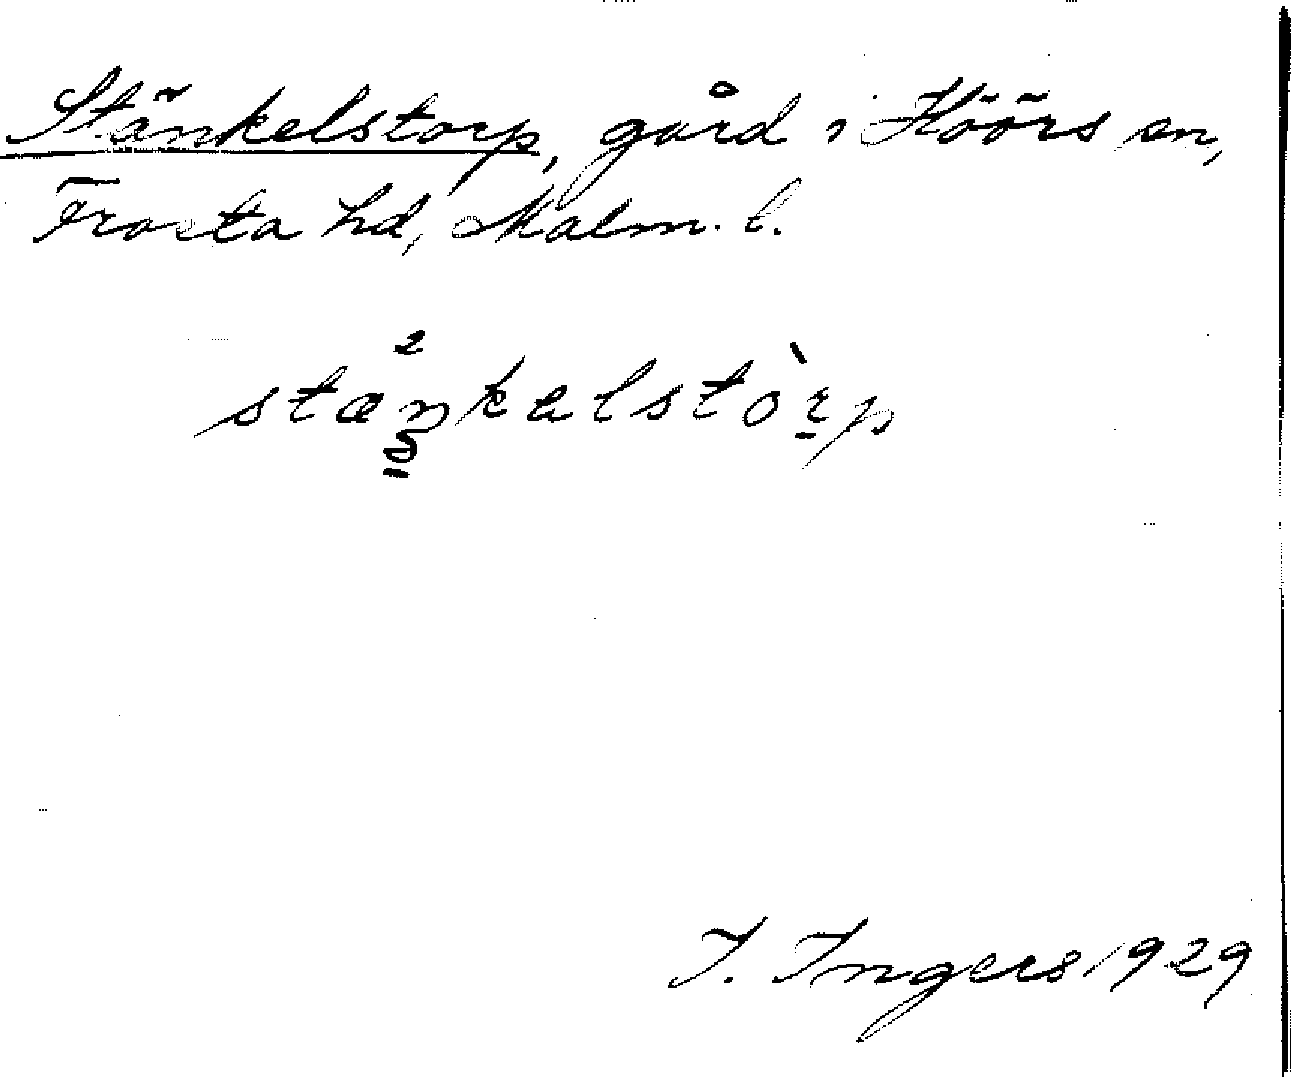 Stänkelstorp, gård i Höörs sn,
Frosta hd, Malm. l.
stæŋkəlstòrp
I. Ingers 1929